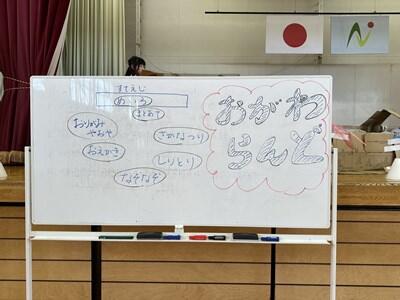 すてえじ
めいろ
まとあて
おりがみ
やおや
さかなつり
おえかき
しりとり
なぞなぞ
おがわ
らんど